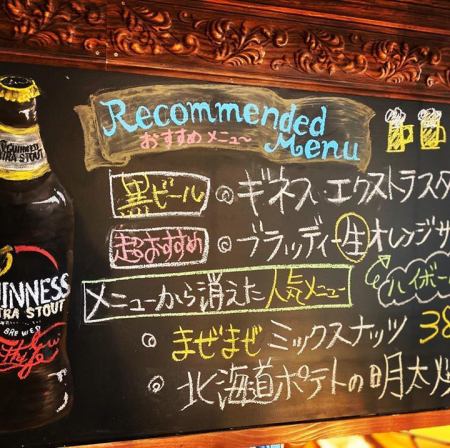 Recommended
Menu
おすすめメニュー
黒ビール ◎ ギネス、エクストラスタ
超おすすめ ◎ ブラッディー生オレンジサ
ハイボー
メニューから消えた人気メニュー
まぜまぜミックスナッツ 38
◎ 北海道ポテトの明太
GUINNESS
EXTRA STOUT
UINNESS
TRA STOUT
BREWED